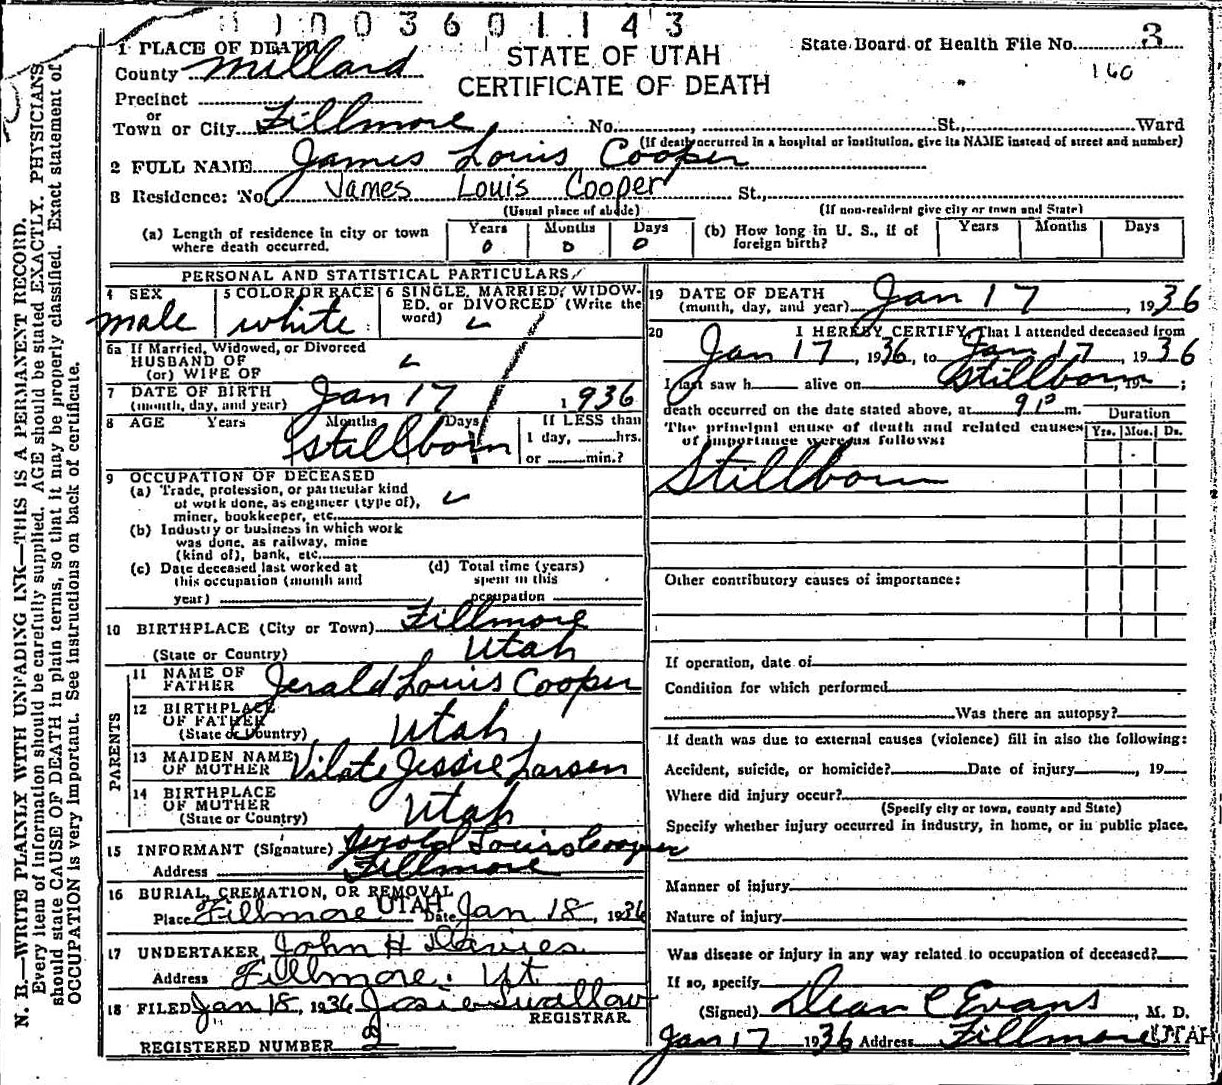 0003601143
1 PLACE OF DEATH
STATE OF UTAH
CERTIFICATE OF DEATH
State Board of Health File No. 3
160
County Millard
Precinct
or
Town or City Fillmore No. , St., Ward
(If death occurred in a hospital or institution, give its NAME instead of street and number)
2 FULL NAME James Louis Cooper
3 Residence: No. James Louis Cooper St.,
(Usual place of abode) (If non-resident give city or town and State)
(a) Length of residence in city or town where death occurred. Years 0 Months 0 Days 0
(b) How long in U. S., if of foreign birth? Years Months Days
PERSONAL AND STATISTICAL PARTICULARS
4 SEX male
5 COLOR OR RACE white
6 SINGLE, MARRIED, WIDOW-
ED, or DIVORCED (Write the
word)
6a If Married, Widowed, or Divorced
HUSBAND OF
(or) WIFE OF
7 DATE OF BIRTH
(month, day, and year) Jan 17 1936
8 AGE Years Months Days If LESS than
1 day, hrs.
or min.?
Stillborn
9 OCCUPATION OF DECEASED
(a) Trade, profession, or particular kind
of work done, as engineer (type of),
miner, bookkeeper, etc.
(b) Industry or business in which work
was done, as railway, mine
(kind of), bank, etc.
(c) Date deceased last worked at
this occupation (month and
year)
(d) Total time (years)
spent in this
occupation
10 BIRTHPLACE (City or Town) Fillmore
(State or Country) Utah
PARENTS
11 NAME OF
FATHER Jerald Louis Cooper
12 BIRTHPLACE
OF FATHER
(State or Country) Utah
13 MAIDEN NAME
OF MOTHER Vilate Jessie Larsen
14 BIRTHPLACE
OF MOTHER
(State or Country) Utah
15 INFORMANT (Signature) Jerold Louis Cooper
Address Fillmore
16 BURIAL, CREMATION, OR REMOVAL
Place Fillmore UTAH Date Jan 18, 1936
17 UNDERTAKER John H Davies
Address Fillmore. Ut.
18 FILED Jan 18, 1936 Josie Swallow
REGISTRAR.
REGISTERED NUMBER 2
19 DATE OF DEATH
(month, day, and year) Jan 17, 1936
20 I HEREBY CERTIFY, That I attended deceased from
Jan 17, 1936, to Jan 17, 1936
I last saw h alive on Stillborn, 19 ;
death occurred on the date stated above, at 9 10 m.
The principal cause of death and related causes
of importance were as follows:
Duration
Yrs. Mos. Ds.
Stillborn
Other contributory causes of importance:
If operation, date of
Condition for which performed
Was there an autopsy?
If death was due to external causes (violence) fill in also the following:
Accident, suicide, or homicide? Date of injury , 19
Where did injury occur?
(Specify city or town, county and State)
Specify whether injury occurred in industry, in home, or in public place.
Manner of injury
Nature of injury
Was disease or injury in any way related to occupation of deceased?
If so, specify
(Signed) Dean C Evans, M. D.
Jan 17 1936 Address Fillmore UTAH
N. B.—WRITE PLAINLY WITH UNFADING INK—THIS IS A PERMANENT RECORD.
Every item of information should be carefully supplied. AGE should be stated EXACTLY. PHYSICIANS
should state CAUSE OF DEATH in plain terms, so that it may be properly classified. Exact statement of
OCCUPATION is very important. See instructions on back of certificate.